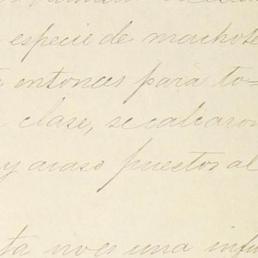 especie de machote
entonces para to-
clase, se calcaron
y acaso puestos al
ta no es una infu